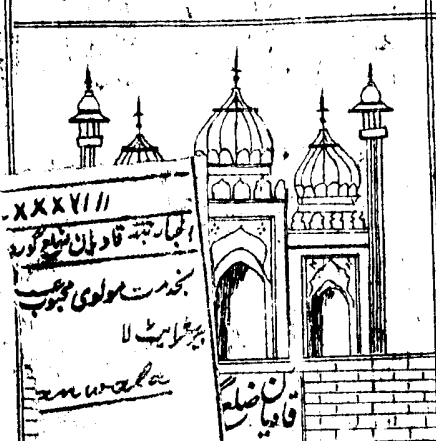 XXXVIII
اخبار بدر قادیان ضلع گورد
بخدمت مولوی محبوب
بیرسٹرایٹ لا
anwala
قادیان ضلع گ